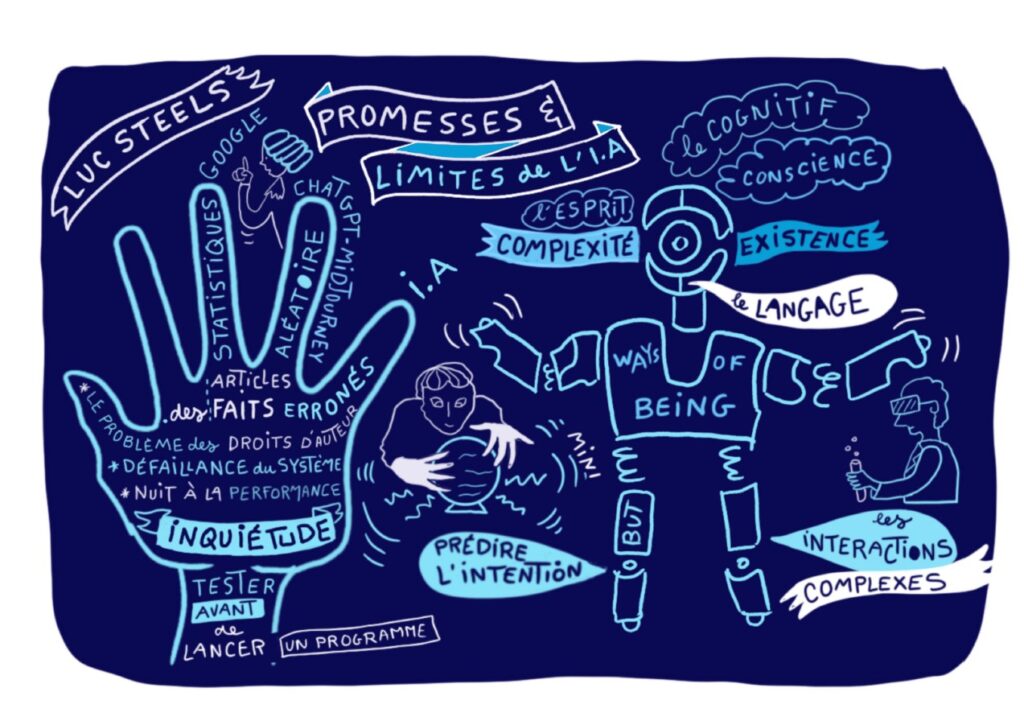 LUC STEELS
PROMESSES &
LIMITES de L'I.A
GOOGLE
CHATGPT-MIDJOURNEY
STATISTIQUES
ALÉATOIRE
I.A
ARTICLES
des FAITS ERRONÉS
*LE PROBLÈME des DROITS D'AUTEUR
*DÉFAILLANCE du SYSTÈME
*NUIT À LA PERFORMANCE
INQUIÉTUDE
TESTER
AVANT
de
LANCER
UN PROGRAMME
le COGNITIF
CONSCIENCE
l'ESPRIT
COMPLEXITÉ
EXISTENCE
le LANGAGE
WAYS OF
BEING
MINI
BUT
PRÉDIRE
L'INTENTION
les
INTERACTIONS
COMPLEXES